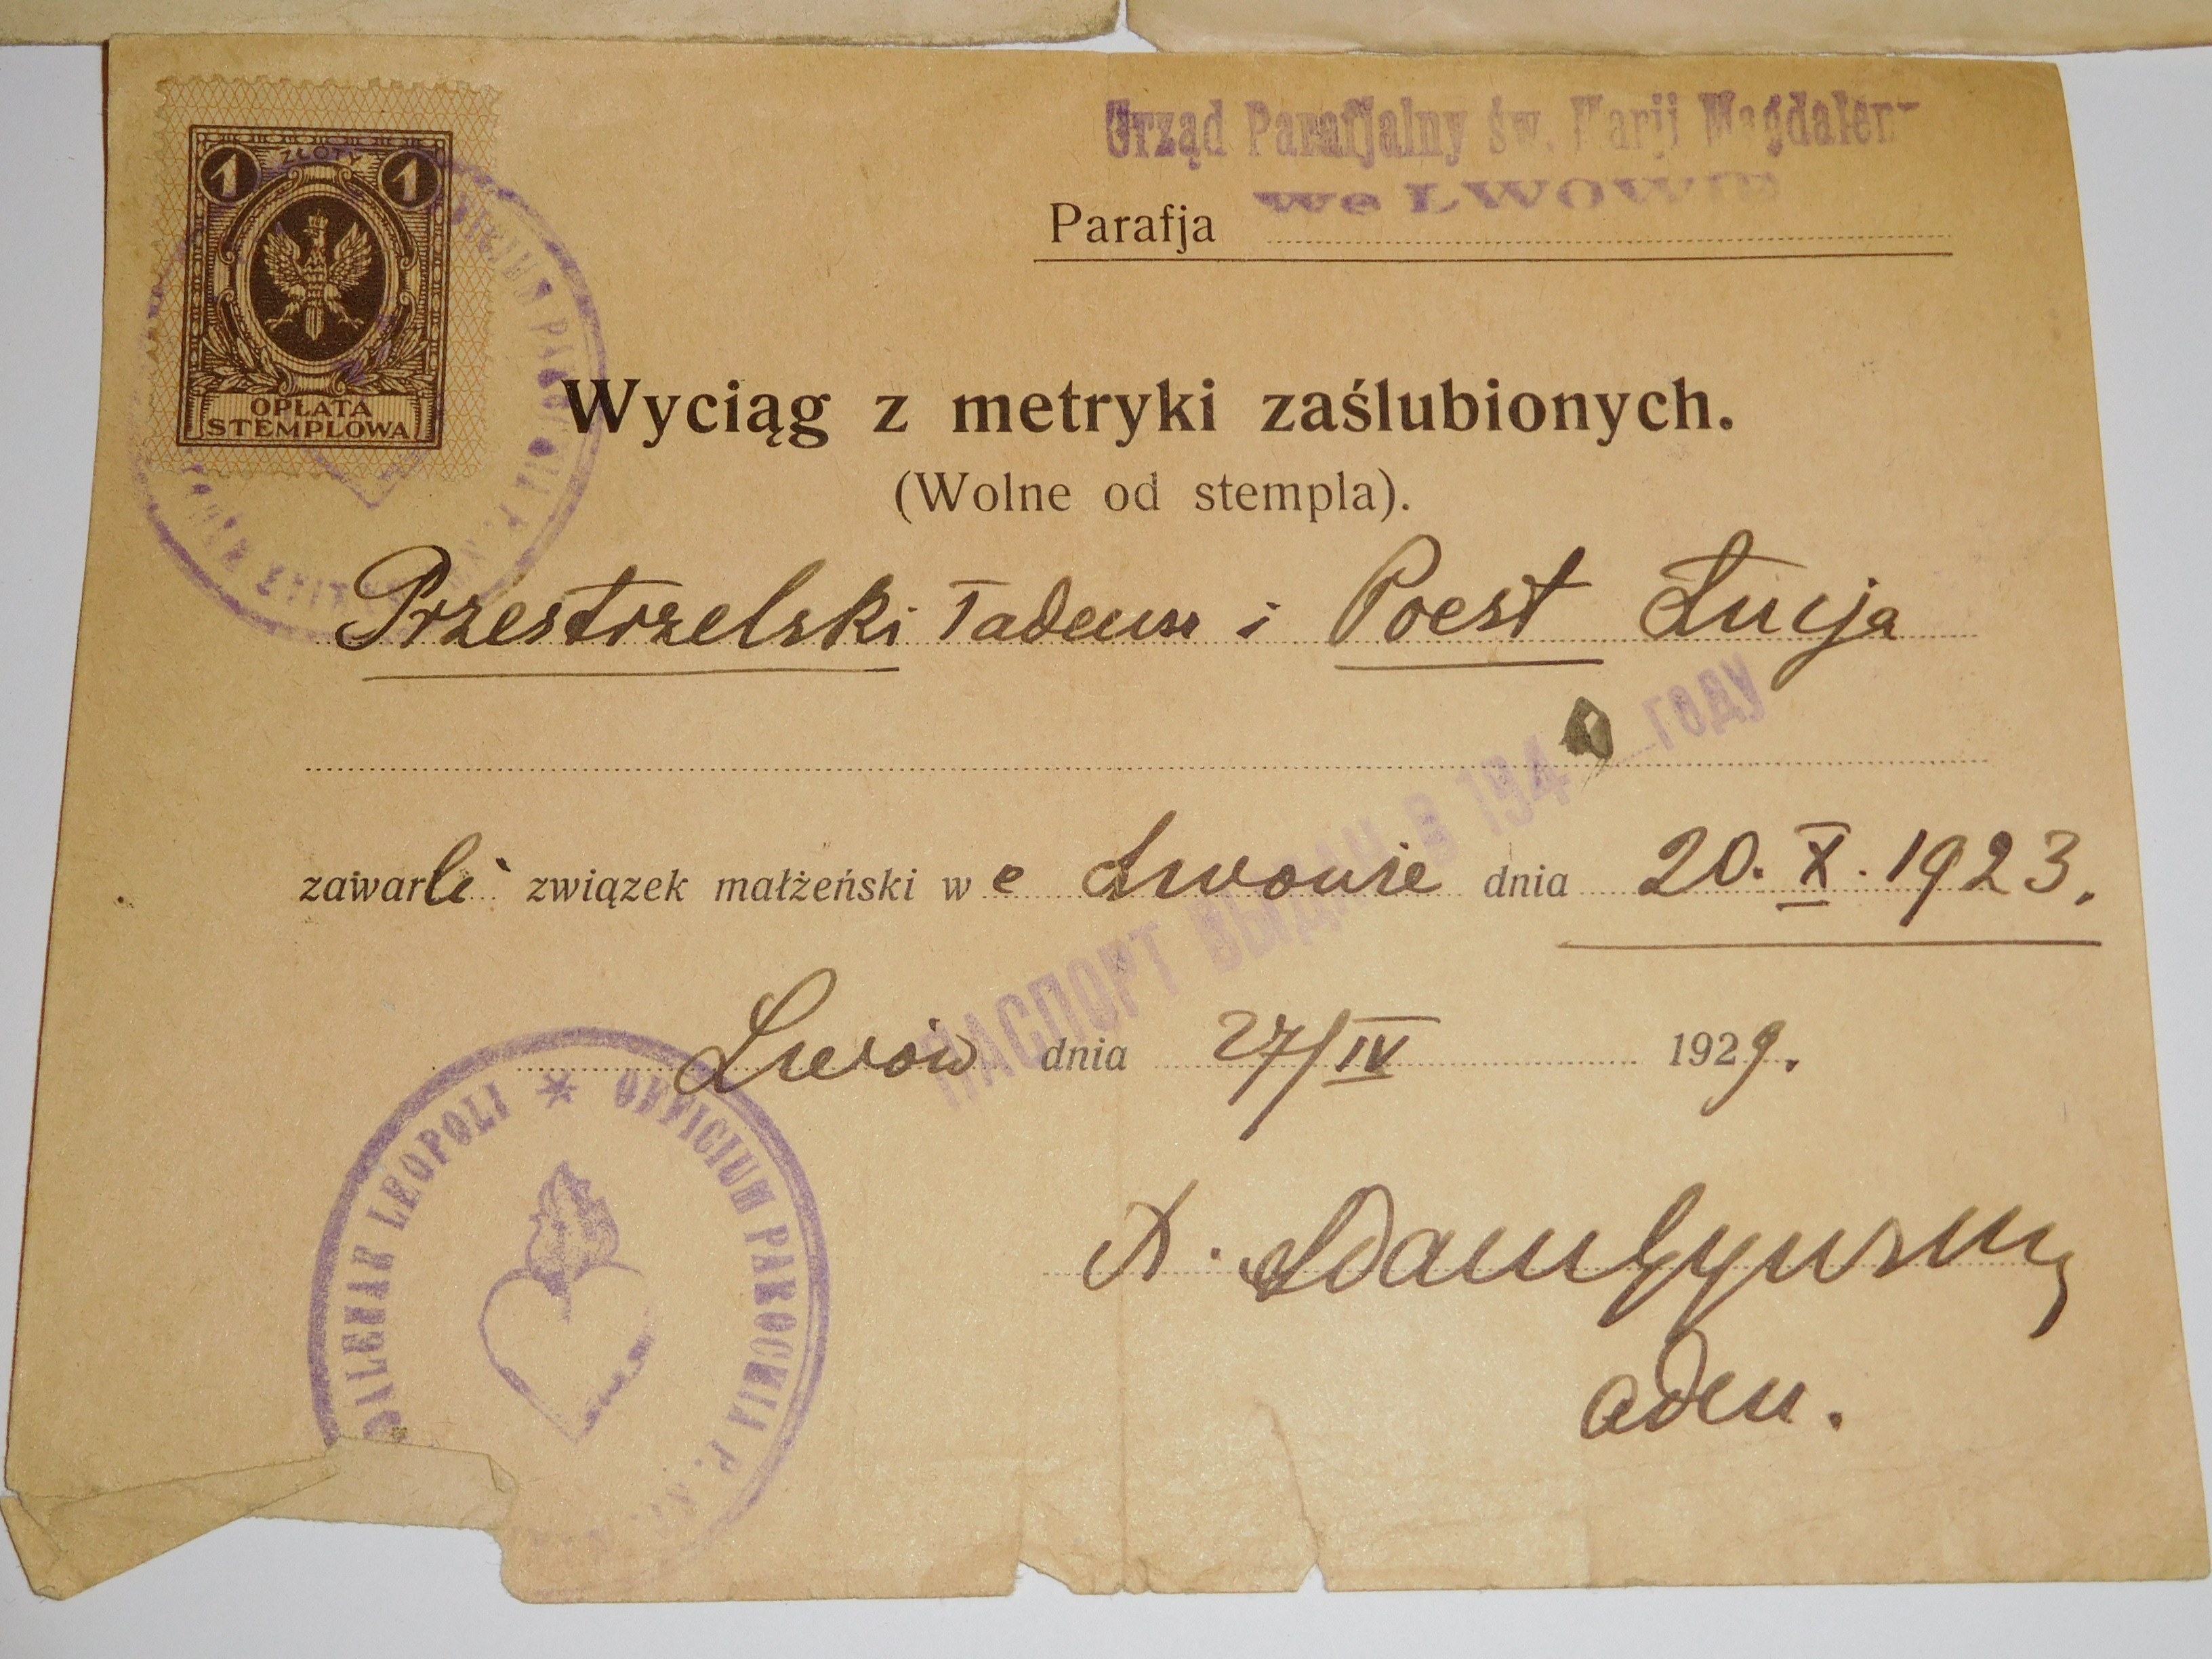 1 ZŁOTY 1
OPŁATA
STEMPLOWA
Urząd Parafjalny św. Marji Magdalen
we LWOWIE
Parafja
Wyciąg z metryki zaślubionych.
(Wolne od stempla).
Przestrzelski Tadeusz i Poest Łucja
zawarli związek małżeński we Lwowie dnia 20. X. 1923.
ПАСПОРТ ВЫДАН В 194 году
Lwów dnia 27/IV 1929.
DALENAE LEOPOLI * OFFICIUM PAROCHIA
X.
adm.